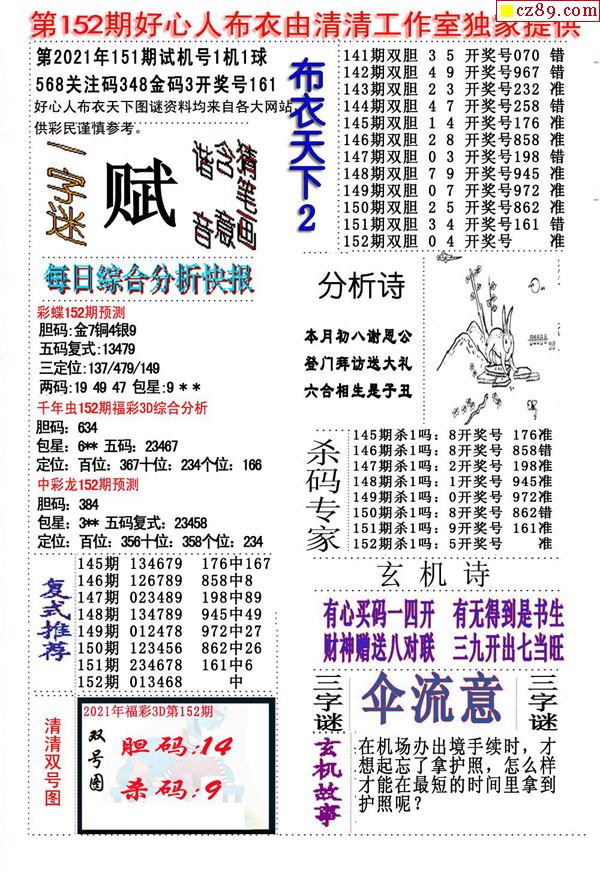 cz89.com
第152期好心人布衣由清清工作室独家提供
第2021年151期试机号1机1球
568关注码348金码3开奖号161
好心人布衣天下图谜资料均来自各大网站,
供彩民谨慎参考。
一字迷
赋
谐音
含意
猜笔画
布衣天下2
141期双胆 3 5 开奖号070 错
142期双胆 4 9 开奖号967 错
143期双胆 2 3 开奖号232 准
144期双胆 4 7 开奖号258 错
145期双胆 1 4 开奖号176 准
146期双胆 2 8 开奖号858 准
147期双胆 0 3 开奖号198 错
148期双胆 7 9 开奖号945 准
149期双胆 0 7 开奖号972 准
150期双胆 2 5 开奖号862 准
151期双胆 3 4 开奖号161 错
152期双胆 0 4 开奖号 准
每日综合分析快报
彩蝶152期预测
胆码:金7铜4银9
五码复式:13479
三定位:137/479/149
两码:19 49 47 包星:9 * *
千年虫152期福彩3D综合分析
胆码: 634
包星: 6** 五码: 23467
定位: 百位: 367十位: 234个位: 166
中彩龙152期预测
胆码: 384
包星: 3** 五码复式: 23458
定位: 百位: 356十位: 358个位: 234
分析诗
本月初八谢恩公
登门拜访送大礼
六合相生是子丑
杀码专家
145期杀1吗: 8开奖号 176准
146期杀1吗: 8开奖号 858错
147期杀1吗: 2开奖号 198准
148期杀1吗: 1开奖号 945准
149期杀1吗: 0开奖号 972准
150期杀1吗: 8开奖号 862错
151期杀1吗: 9开奖号 161准
152期杀1吗: 5开奖号 准
复式推荐
145期 134679 176中167
146期 126789 858中8
147期 023489 198中89
148期 134789 945中49
149期 012478 972中27
150期 123456 862中26
151期 234678 161中6
152期 013468 中
玄机诗
有心买码一四开 有无得到是书生
财神赠送八对联 三九开出七当旺
三字谜
伞流意
三字谜
清清双号图
2021年福彩3D第152期
双号图
胆码:14
杀码:9
玄机故事
在机场办出境手续时，才
想起忘了拿护照，怎么样
才能在最短的时间里拿到
护照呢？